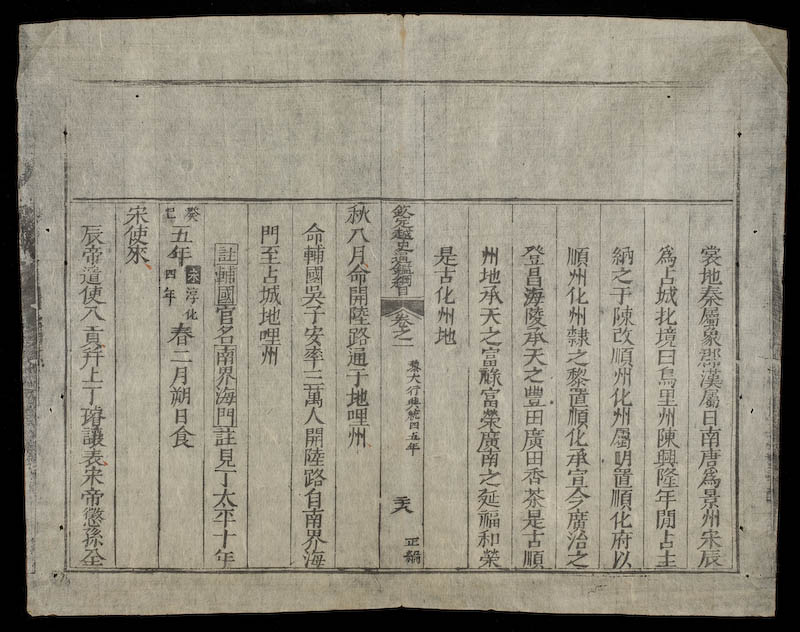 裳地秦屬象郡漢屬日南唐爲景州宋辰
爲占城北境曰烏里州陳興隆年間占主
納之于陳改順州化州屬明置順化府以
順州化州隸之黎置順化承宣今廣治之
登昌海陵承天之豐田廣田香茶是古順
州地承天之富祿富榮廣南之延福和榮
是古化州地
欽定越史通鑑綱目 卷之一 黎大行興統四五年 正編
秋八月命開陸路通于地哩州
命輔國吳子安率三萬人開陸路自南界海
門至占城地哩州
註輔國官名南界海門註見丁太平十年
癸巳五年宋淳化四年春二月朔日食
宋使來
辰帝遣使入貢幷上丁璿讓表宋帝懲孫全